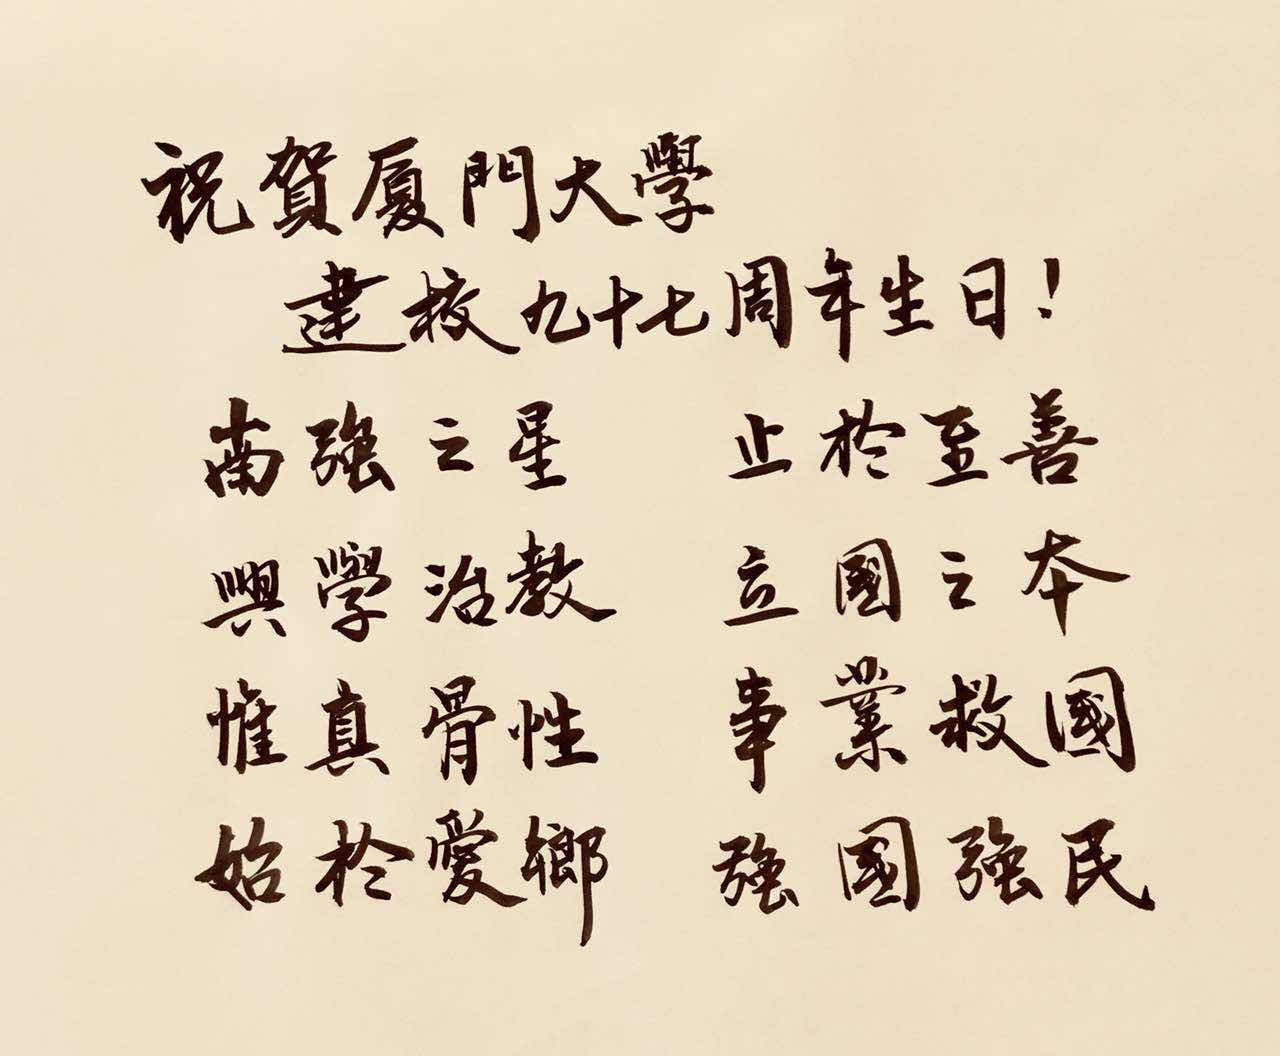 祝賀厦門大學
建校九十七周年生日！
南強之星 止於至善
興學治教 立國之本
惟真骨性 事業救國
始於愛鄉 強國強民